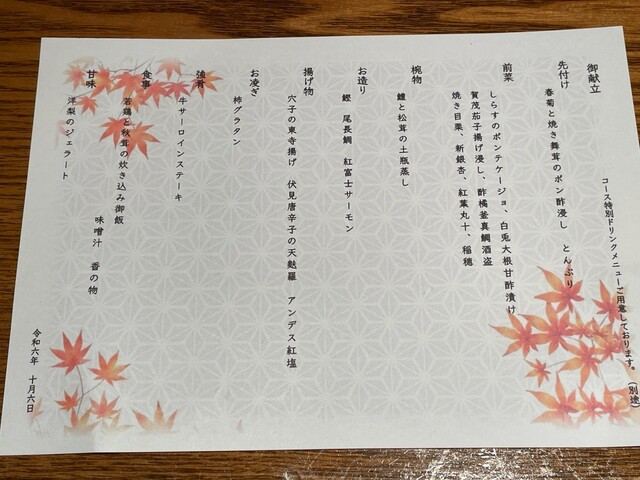 御献立
コース特別ドリンクメニューご用意しております。（別途）
先付け
春菊と焼き舞茸のポン酢浸し　とんぶり
前菜
しらすのポンテケージョ、白兎大根甘酢漬け
賀茂茄子揚げ浸し、酢橘釜真鯛酒盗
焼き目栗、新銀杏、紅葉丸十、稲穂
椀物
鱧と松茸の土瓶蒸し
お造り
鰹　尾長鯛　紅富士サーモン
揚げ物
穴子の東寺揚げ　伏見唐辛子の天麩羅　アンデス紅塩
お凌ぎ
柿グラタン
強肴
牛サーロインステーキ
食事
若鶏と秋茸の炊き込み御飯
味噌汁　香の物
甘味
洋梨のジェラート
令和六年　十月六日